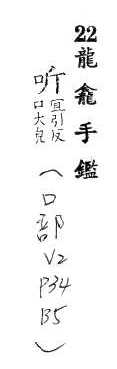 22龍龕手鑑
听宜引反口大皃（口部 V2 P34 B5）